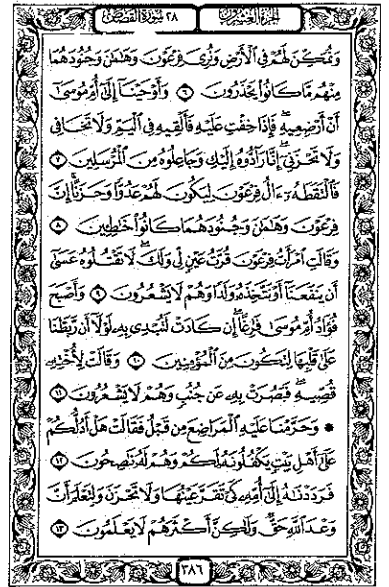 الجزء العشرون ٢٨ سورة القصص
وَنُمَكِّنَ لَهُمْ فِي الْأَرْضِ وَنُرِيَ فِرْعَوْنَ وَهَامَانَ وَجُنُودَهُمَا
مِنْهُم مَّا كَانُوا يَحْذَرُونَ ٦ وَأَوْحَيْنَا إِلَىٰ أُمِّ مُوسَىٰ
أَنْ أَرْضِعِيهِ ۖ فَإِذَا خِفْتِ عَلَيْهِ فَأَلْقِيهِ فِي الْيَمِّ وَلَا تَخَافِي
وَلَا تَحْزَنِي ۖ إِنَّا رَادُّوهُ إِلَيْكِ وَجَاعِلُوهُ مِنَ الْمُرْسَلِينَ ٧
فَالْتَقَطَهُ ءَالُ فِرْعَوْنَ لِيَكُونَ لَهُمْ عَدُوًّا وَحَزَنًا ۗ إِنَّ
فِرْعَوْنَ وَهَامَانَ وَجُنُودَهُمَا كَانُوا خَاطِئِينَ ٨
وَقَالَتِ امْرَأَتُ فِرْعَوْنَ قُرَّتُ عَيْنٍ لِّي وَلَكَ ۖ لَا تَقْتُلُوهُ عَسَىٰ
أَن يَنفَعَنَا أَوْ نَتَّخِذَهُ وَلَدًا وَهُمْ لَا يَشْعُرُونَ ٩ وَأَصْبَحَ
فُؤَادُ أُمِّ مُوسَىٰ فَارِغًا ۖ إِن كَادَتْ لَتُبْدِي بِهِ لَوْلَا أَن رَّبَطْنَا
عَلَىٰ قَلْبِهَا لِتَكُونَ مِنَ الْمُؤْمِنِينَ ١٠ وَقَالَتْ لِأُخْتِهِ
قُصِّيهِ ۖ فَبَصُرَتْ بِهِ عَن جُنُبٍ وَهُمْ لَا يَشْعُرُونَ ١١
۞ وَحَرَّمْنَا عَلَيْهِ الْمَرَاضِعَ مِن قَبْلُ فَقَالَتْ هَلْ أَدُلُّكُمْ
عَلَىٰ أَهْلِ بَيْتٍ يَكْفُلُونَهُ لَكُمْ وَهُمْ لَهُ نَاصِحُونَ ١٢
فَرَدَدْنَاهُ إِلَىٰ أُمِّهِ كَيْ تَقَرَّ عَيْنُهَا وَلَا تَحْزَنَ وَلِتَعْلَمَ أَنَّ
وَعْدَ اللَّهِ حَقٌّ وَلَٰكِنَّ أَكْثَرَهُمْ لَا يَعْلَمُونَ ١٣
٣٨٦